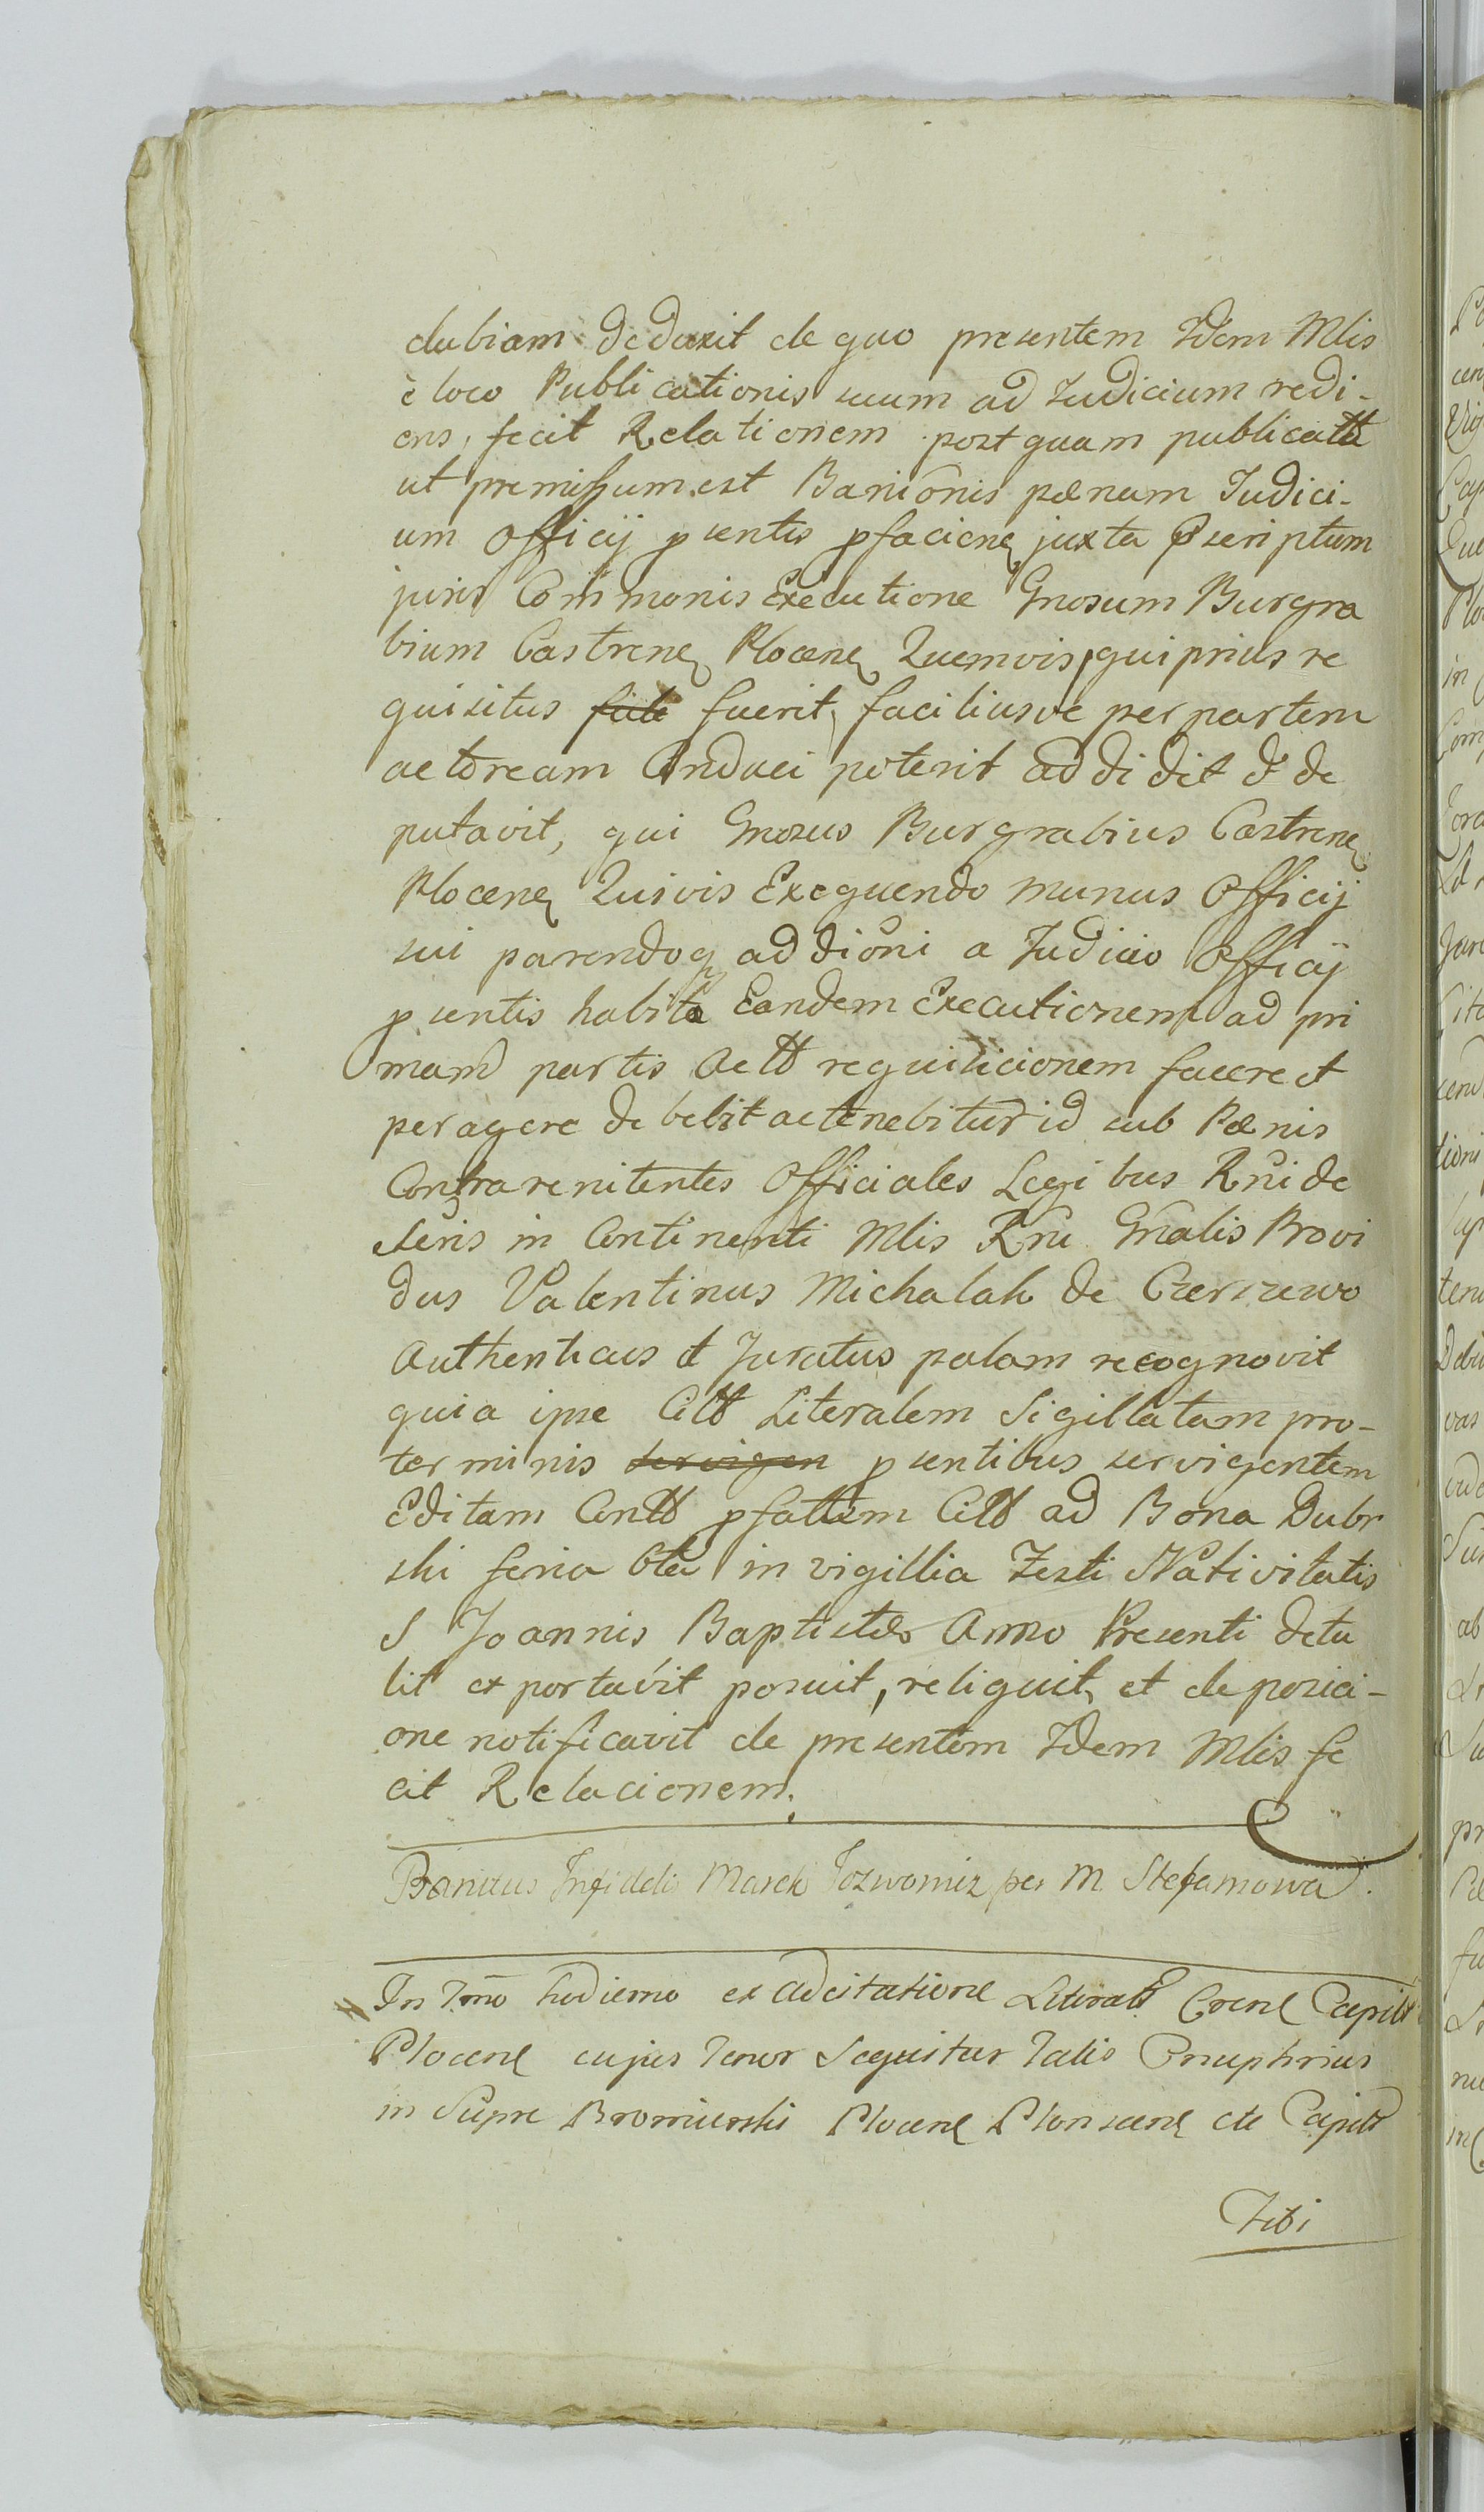 dubiam deduxit de quo presentem Idem Mlis
è loco Publicationis suum ad Iudicium redi-
ens, fecit Relationem postquam publicatta
ut premissum est Banionis pænam Iudici-
um Officij psentis pfaciene juxta Pscriptum
juris Communis Executione Gnosum Burgra
bium Castrene Plocene Quemvis, qui prius re
quisitus fuerit, faciliusve per partem
actoream Conduci poterit addidit & de
putavit, qui Gnosus Burgrabius Castrene
Plocene Quivis Exequendo munus Officij
sui parendoq addioni a Iudicio Officij
psentis habita Eandem Executionem ad pri
mam partis Actt requisicionem facere et
peragere debebit ac tenebitur id sub Pænis
Contra renitentes Officiales Legibus Rni de
scris in Continenti Mlis Rni Gnalis Provi
dus Valentinus Michalak de Czerszewo
Authenticus et Juratus palam recognovit
quia ipse Citt Literalem Sigillatam pro-
terminis servigen psentibus servigentem
Editam Contt pfattem Citt ad Bona Dubr
ski feria 6ta in vigillia Festi Nativitatis
S Joannis Baptistæ Anno Presenti detu
lit exportavit posuit, reliquit, et de posici-
one notificavit de presentem Idem Mlis fe
cit Relacionem.
Banitus Infideli Marek Jozwomiz per M Stefanowa.
In Tmo hodierno ex adcitatione Literali Crene Capitt
Plocene cujus tenor Sequitur talis Onuphrius
in Supre Bromierski Plocene Plonscene etc Capitt
Tibi